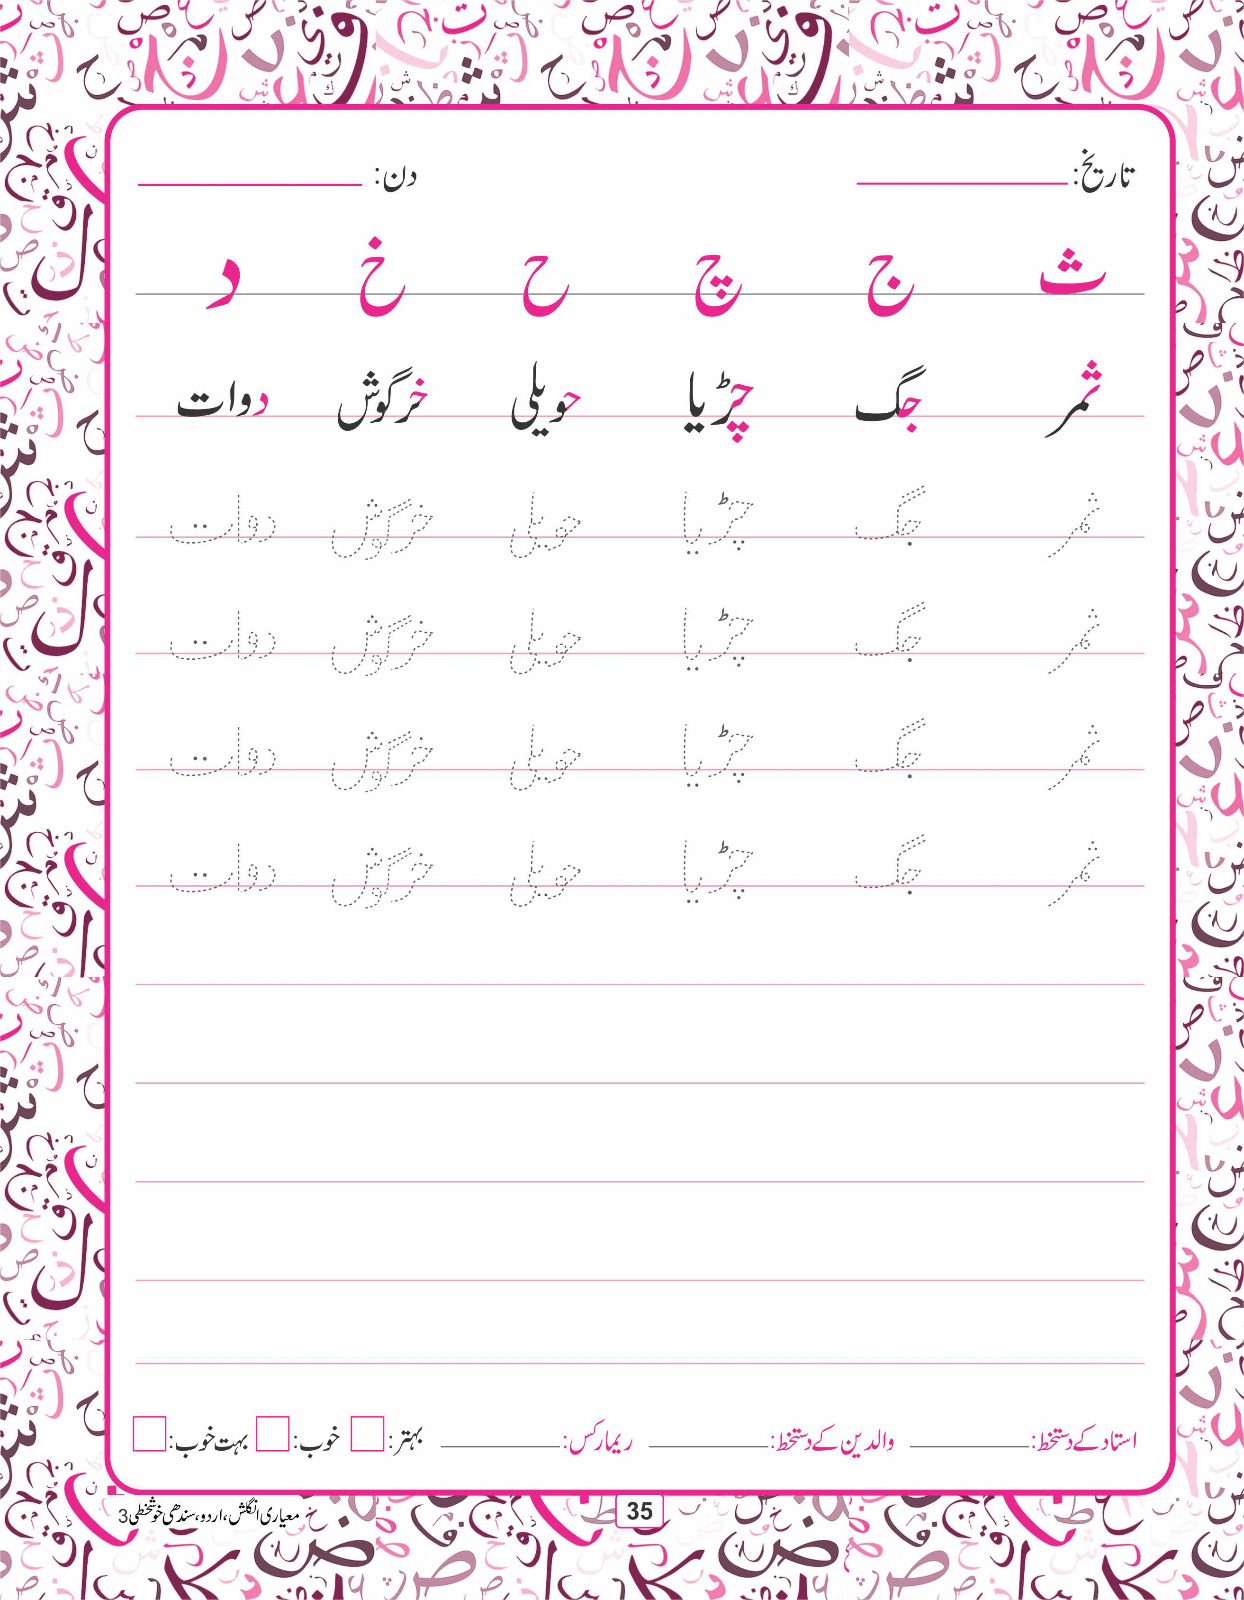 تاریخ: دن:
ث ج چ ح خ د
ثمر جگ چڑیا حویلی خرگوش دوات
ثمر جگ چڑیا حویلی خرگوش دوات
ثمر جگ چڑیا حویلی خرگوش دوات
ثمر جگ چڑیا حویلی خرگوش دوات
ثمر جگ چڑیا حویلی خرگوش دوات
استاد کے دستخط: والدین کے دستخط: ریمارکس: بہتر: خوب: بہت خوب:
35
معیاری انگلش، اردو، سندھی خوشخطی 3